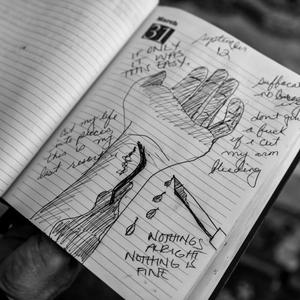 March
31
September
12
IF ONLY
IT WAS
THIS EASY.
Cut my life
into pieces
this is my
last resort
Suffocation
no
don't give
a fuck
if i cut
my arm
bleeding
NOTHINGS
ALRIGHT
NOTHING IS
FINE